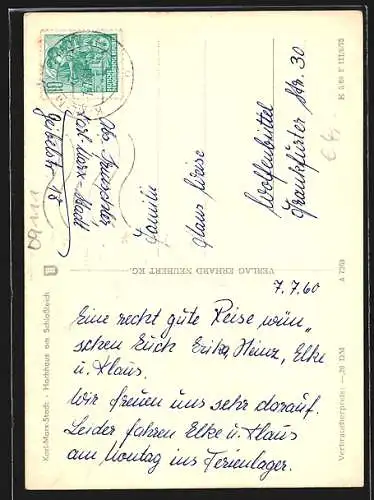 7. 7. 60
Eine recht gute Reise wün„
schen Euch Erika, Heinz, Elke
u. Klaus.
Wir freuen uns sehr darauf.
Leider fahren Elke u. Klaus
am Montag ins Ferienlager.
Familie
Klaus Wiese
Wolfenbüttel
Frankfurter Str. 30
Abs.
Karl-Marx-Stadt
18
VERLAG ERHARD NEUBERT KG.
Karl-Marx-Stadt - Hochhaus am Schloßteich
A 7203
Verbraucherpreis: —,20 DM